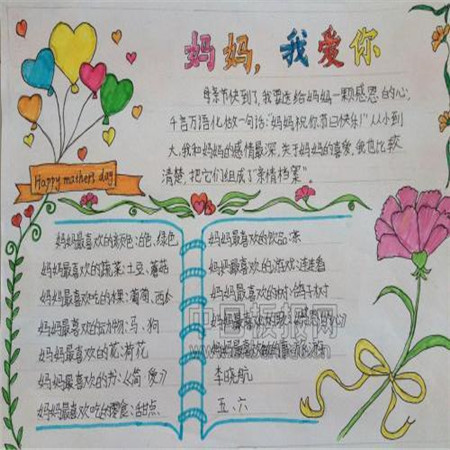 妈妈，我爱你
Happy mothers day
母亲节快到了，我要送给妈妈一颗感恩的心，
千言万语化做一句话："妈妈祝你节日快乐！"从小到
大，我和妈妈的感情最深，关于妈妈的喜爱，我也比较
清楚，把它们组成了"亲情档案"。
妈妈最喜欢的颜色：白色、绿色
妈妈最喜欢的蔬菜：土豆、蘑菇
妈妈最喜欢吃的水果：葡萄、西
妈妈最喜欢的动物：马、狗
妈妈最喜欢的花：荷花
妈妈最喜欢的书：
妈妈最喜欢吃的零食：甜点
妈妈最喜欢的饮品：茶
妈妈最喜欢的游戏：连连看
妈妈最喜欢的树：
妈妈最喜欢
妈妈最喜欢
李晓航
五、六